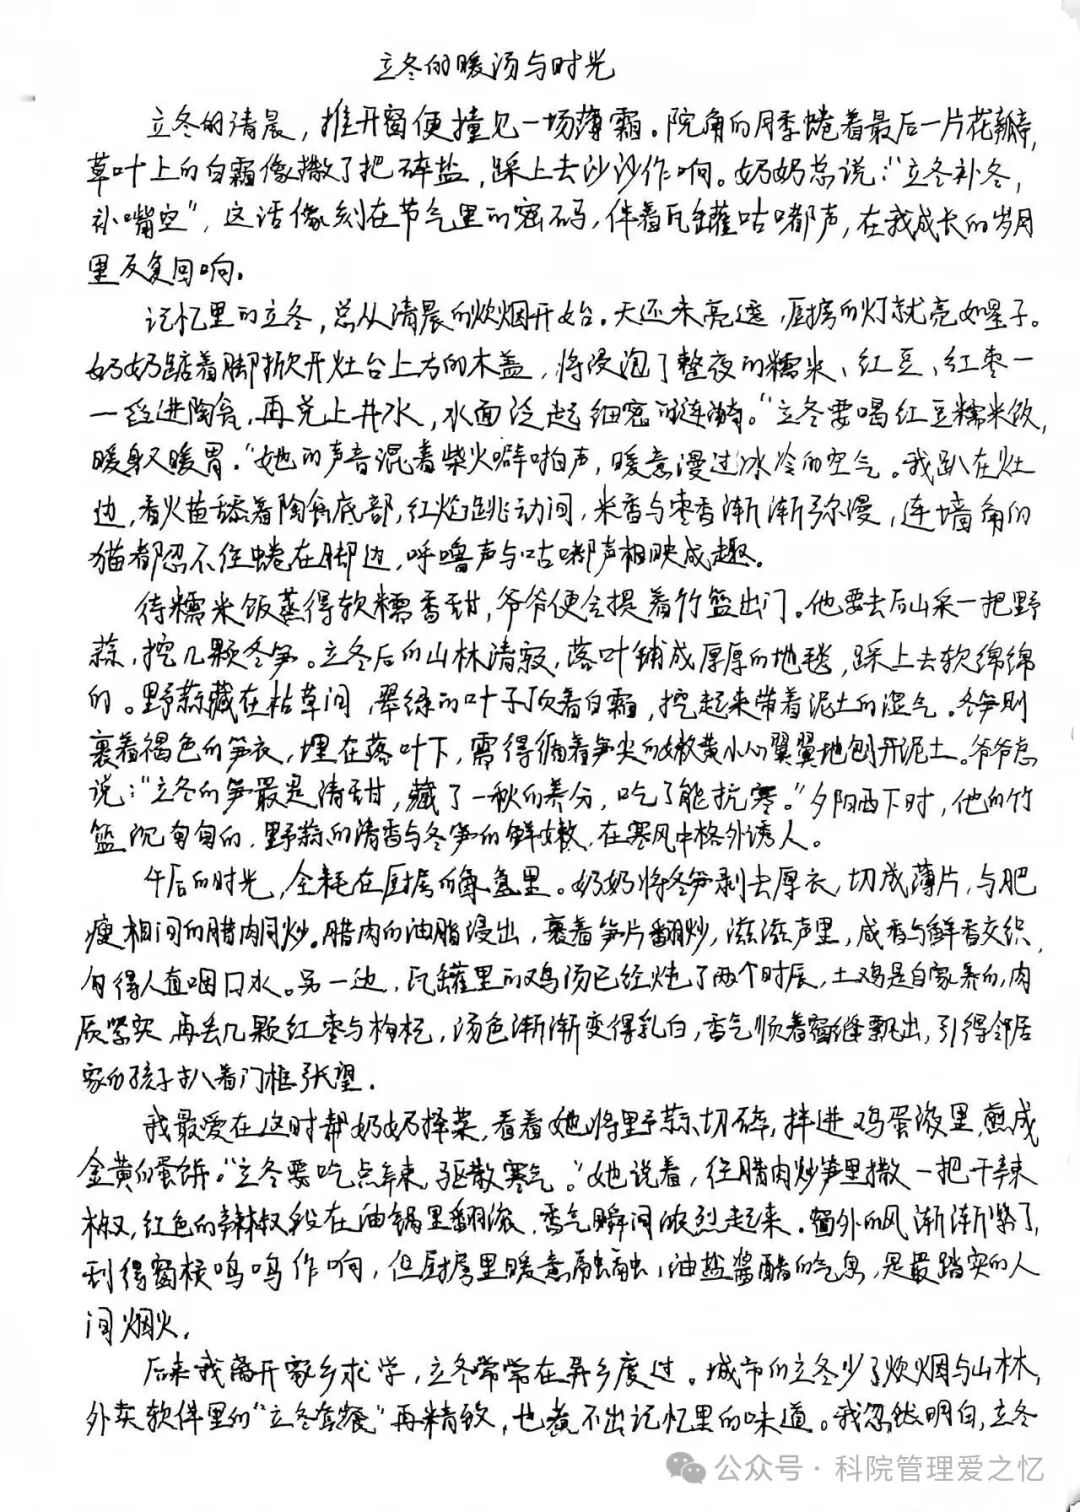 立冬的暖汤与时光
立冬的清晨，推开窗便撞见一场薄霜。院角的月季蜷着最后一片花瓣，
草叶上的白霜像撒了把碎盐，踩上去沙沙作响。奶奶总说：“立冬补冬，
补嘴空”，这话像刻在节气里的密码，伴着瓦罐咕嘟声，在我成长的岁月
里反复回响。
记忆里的立冬，总从清晨的炊烟开始。天还未亮透，厨房的灯就亮如星子。
奶奶踮着脚掀开灶台上方的木盖，将浸泡了整夜的糯米、红豆、红枣一
一舀进陶瓮，再兑上井水，水面泛起细密的涟漪。“立冬要喝红豆糯米饭，
暖身又暖胃。”她的声音混着柴火噼啪声，暖意漫过冰冷的空气。我趴在灶
边，看火苗舔着陶瓮底部，红焰跳动间，米香与枣香渐渐弥漫，连墙角的
猫都忍不住蜷在脚边，呼噜声与咕嘟声相映成趣。
待糯米饭蒸得软糯香甜，爷爷便会提着竹篮出门。他要去后山采一把野
蒜，挖几颗冬笋。立冬后的山林清寂，落叶铺成厚厚的地毯，踩上去软绵绵
的。野蒜藏在枯草间，翠绿的叶子顶着白霜，挖起来带着泥土的湿气。冬笋则
裹着褐色的笋衣，埋在落叶下，需得循着笋尖的嫩黄小心翼翼地刨开泥土。爷爷总
说：“立冬的笋最是清甜，藏了一秋的养分，吃了能抗寒。”夕阳西下时，他的竹
篮沉甸甸的，野蒜的清香与冬笋的鲜嫩，在寒风中格外诱人。
午后的时光，全耗在厨房的氤氲里。奶奶将冬笋剥去厚衣，切成薄片，与肥
瘦相间的腊肉同炒。腊肉的油脂浸出，裹着笋片翻炒，滋滋声里，咸香与鲜香交织，
馋得人直咽口水。另一边，瓦罐里的鸡汤已经炖了两个时辰，土鸡是自家养的，肉
质紧实，再丢几颗红枣与枸杞，汤色渐渐变得乳白，香气顺着窗缝飘出，引得邻居
家的孩子扒着门框张望。
我最爱在这时帮奶奶择菜，看着她将野蒜切碎，拌进鸡蛋液里，煎成
金黄的蛋饼。“立冬要吃点辣，驱散寒气。”她说着，往腊肉炒笋里撒一把干辣
椒，红色的辣椒段在油锅里翻滚，香气瞬间浓烈起来。窗外的风渐渐紧了，
刮得窗棂呜呜作响，但厨房里暖意融融，油盐酱醋的气息，是最踏实的人
间烟火。
后来我离开家乡求学，立冬常常在异乡度过。城市的立冬少了炊烟与山林，
外卖软件里的“立冬套餐”再精致，也煮不出记忆里的味道。我忽然明白，立冬
公众号·科院管理爱之忆